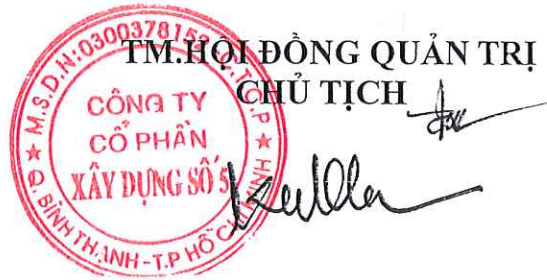 TM.HỘI ĐỒNG QUẢN TRỊ
CHỦ TỊCH
M.S.D.N:0300378152
C.T.C.P
CÔNG TY
CỔ PHẦN
XÂY DỰNG SỐ 5
Q. BÌNH THẠNH-T.P HỒ CHÍ MINH